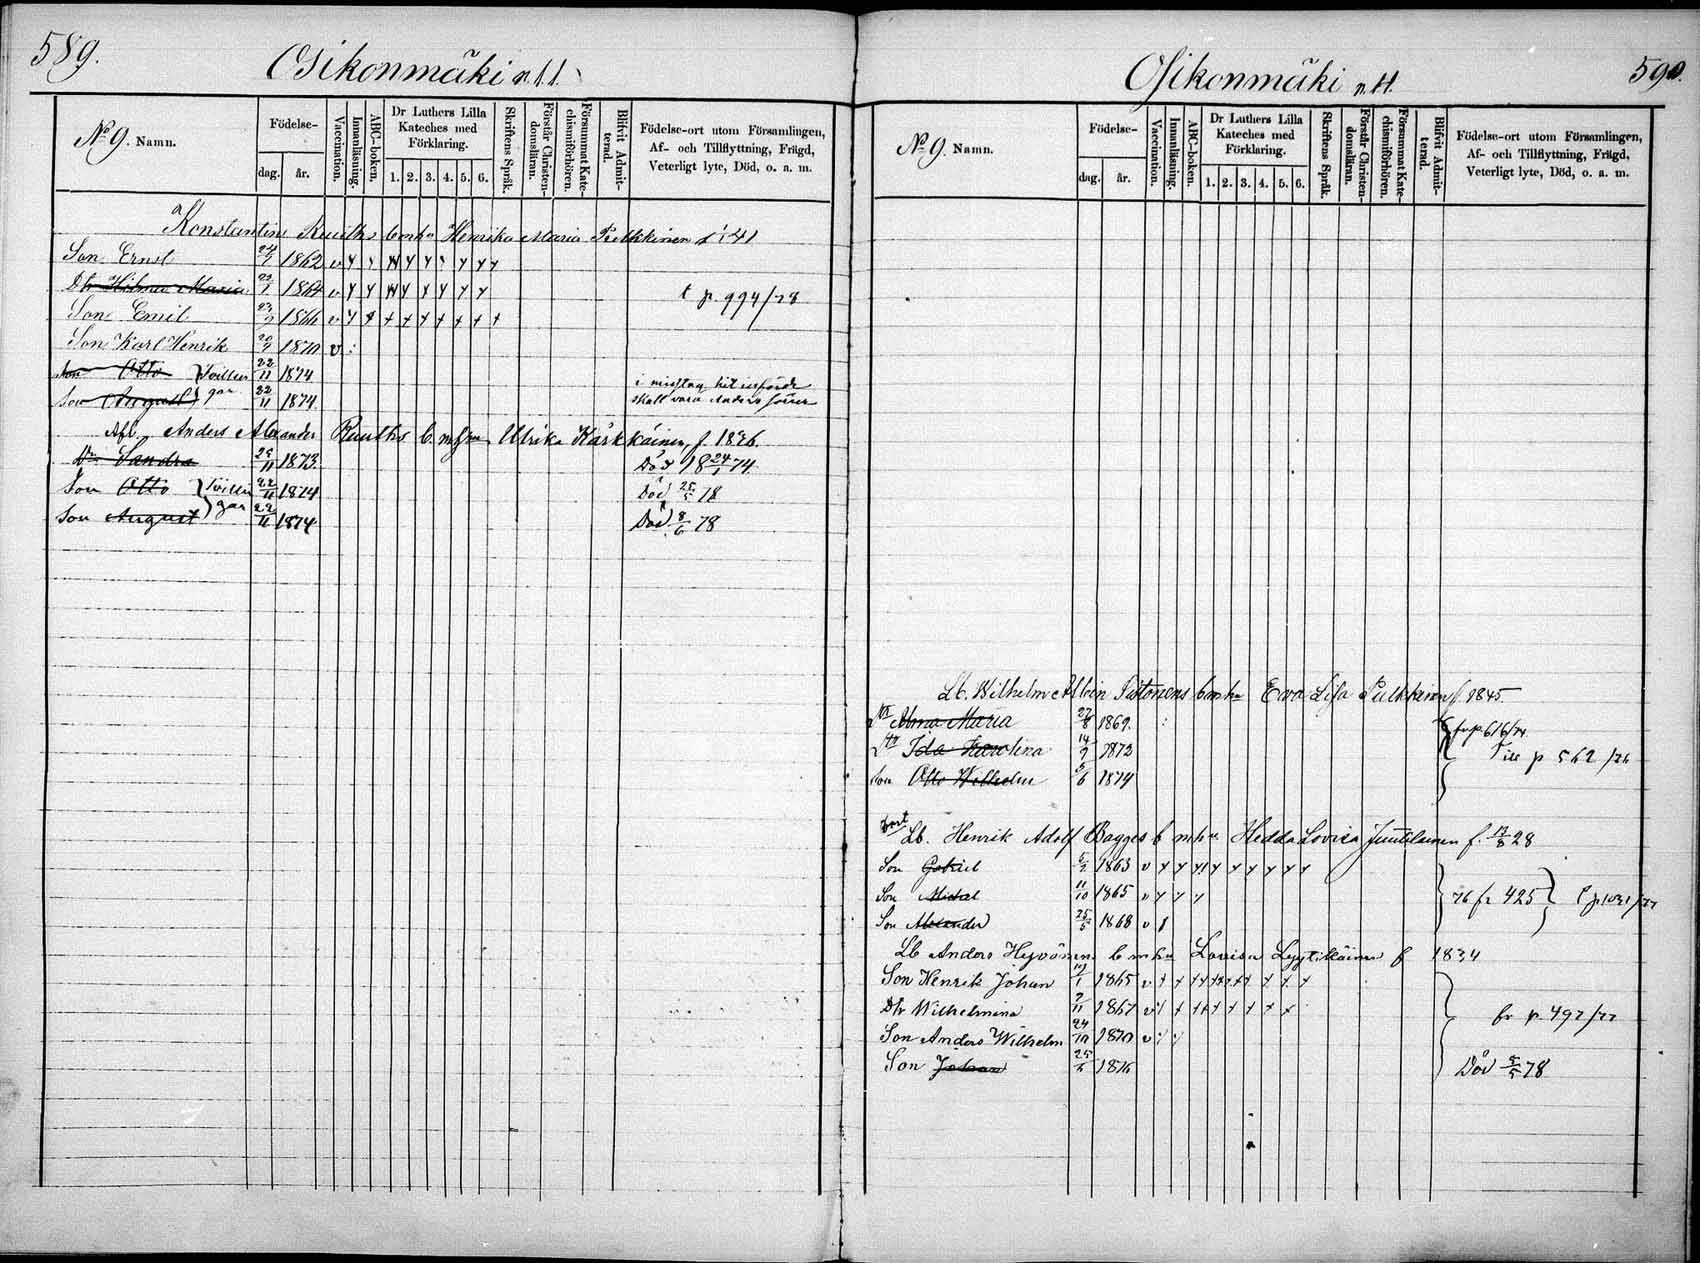 589.
Osikonmäki
No 9. Namn.
Födelse-
dag. år.
Vaccination.
Innanläsning.
ABC-boken.
Dr Luthers Lilla Kateches med Förklaring.
1. 2. 3. 4. 5. 6.
Skriftens Språk.
Förstår Christendomsläran.
Försummat Katechismiförhören.
Blifvit Admitterad.
Födelse-ort utom Församlingen,
Af- och Tillflyttning, Frägd,
Veterligt lyte, Död, o. a. m.
Konstantin Ruuths b mha Henrika Maria Pulkkinen f. 41
Son Ernst 1862 v
Dtr Hilma Maria 1864 v p. 994/78
Son Emil 1866 v
Son Karl Henrik 1870 v
Son Otto 22/11 1874 Tvillin
Son August 22/11 1874 gar
i misstag hit införde
skall vara Anders söner
Anders Alexander Ruuths b. mha Ulrika Kärkkäinen, f. 1836.
Dtr Sandra 1873. Död 18 24/1 74.
Son Otto 22/11 1874 Tvillin Död 25/5 78
Son August 22/11 1874 gar Död 8/6 78
Osikonmäki
590.
No 9. Namn.
Födelse-
dag. år.
Vaccination.
Innanläsning.
ABC-boken.
Dr Luthers Lilla Kateches med Förklaring.
1. 2. 3. 4. 5. 6.
Skriftens Språk.
Förstår Christendomsläran.
Försummat Katechismiförhören.
Blifvit Admitterad.
Födelse-ort utom Församlingen,
Af- och Tillflyttning, Frägd,
Veterligt lyte, Död, o. a. m.
Lb. Wilhelm b mha Eva Lisa Pulkkinen f. 1845.
Dtr Alma Maria 27/8 1869. fr p. 616/74.
Dtr Ida Karolina 14/9 1872 Till p 562
Son Otto Wilhelm 1874
Lb. Henrik Adolf Bagges b mha Hedda Lovisa Juutilainen f. 28
Son Gabriel 1863 v
Son Michel 11/10 1865 v 76 fr 425
Son Alexander 25/5 1868 v
Lb Anders Hyvönens b mha Lovisa f 1834
Son Henrik Johan 1865 v
Dtr Wilhelmina 1867 v fr p. 492/77
Son Anders Wilhelm 24/10 1870 v
Son Johan 1876 Död 78